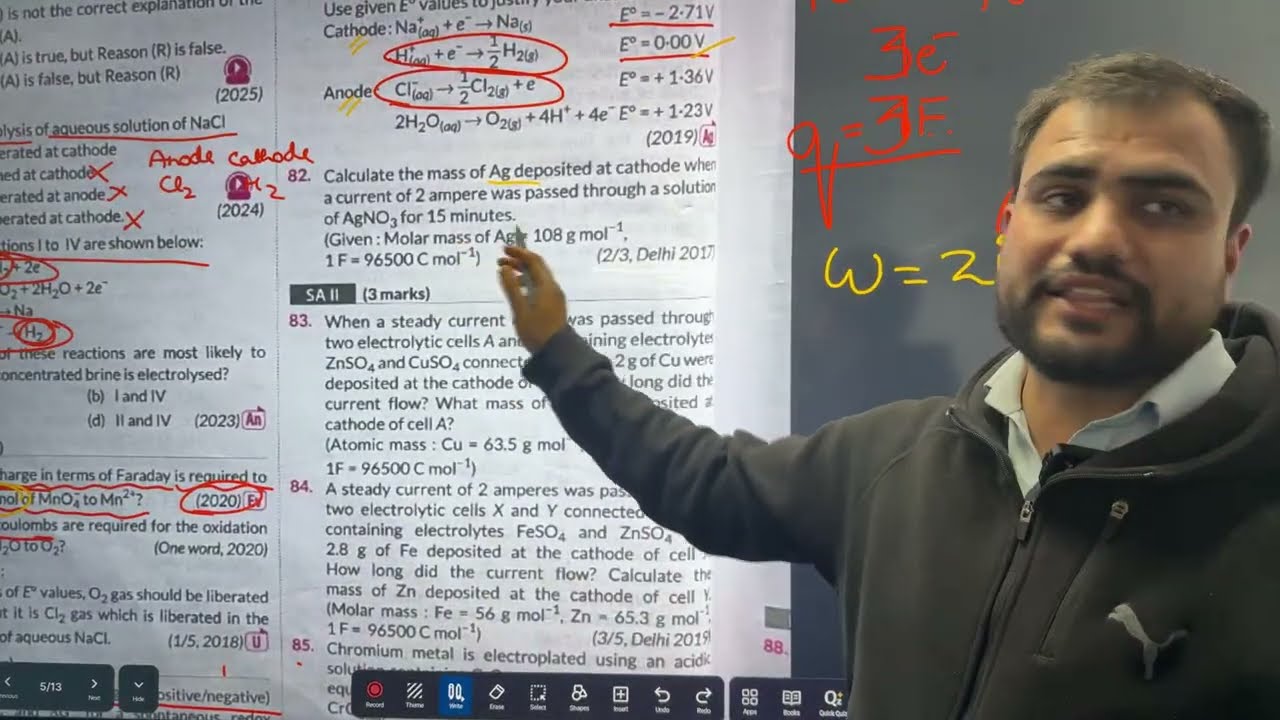 is not the correct explanation of the
(A).
(A) is true, but Reason (R) is false.
(A) is false, but Reason (R)
(2025)
lysis of aqueous solution of NaCl
erated at cathode
ned at cathode
erated at anode
erated at cathode.
(2024)
Anode cathode
Cl2 H2
tions I to IV are shown below:
+ 2e
O₂ + 2H₂O + 2e⁻
→ Na
H₂
of these reactions are most likely to
oncentrated brine is electrolysed?
(b) I and IV
(d) II and IV (2023) An
harge in terms of Faraday is required to
mol of MnO₄⁻ to Mn²⁺? (2020) Ev
oulombs are required for the oxidation
H₂O to O₂? (One word, 2020)
s of E° values, O₂ gas should be liberated
ut it is Cl₂ gas which is liberated in the
of aqueous NaCl. (1/5, 2018) U
ositive/negative)
Use given E° values to justify your
Cathode: Na⁺(aq) + e⁻ → Na(s) E° = – 2.71V
H⁺(aq) + e⁻ → 1/2 H₂(g) E° = 0.00 V
Anode Cl⁻(aq) → 1/2 Cl₂(g) + e E° = + 1.36V
2H₂O(aq) → O₂(g) + 4H⁺ + 4e⁻ E° = + 1.23V
(2019) Ap
82. Calculate the mass of Ag deposited at cathode when
a current of 2 ampere was passed through a solution
of AgNO₃ for 15 minutes.
(Given : Molar mass of Ag = 108 g mol⁻¹,
1 F = 96500 C mol⁻¹) (2/3, Delhi 2017)
SA II (3 marks)
83. When a steady current was passed through
two electrolytic cells A and ining electrolytes
ZnSO₄ and CuSO₄ connecte 2 g of Cu were
deposited at the cathode o long did the
current flow? What mass of osited at
cathode of cell A?
(Atomic mass : Cu = 63.5 g mol
1F = 96500 C mol⁻¹)
84. A steady current of 2 amperes was pas
two electrolytic cells X and Y connected
containing electrolytes FeSO₄ and ZnSO₄
2.8 g of Fe deposited at the cathode of cell
How long did the current flow? Calculate the
mass of Zn deposited at the cathode of cell Y.
(Molar mass : Fe = 56 g mol⁻¹, Zn = 65.3 g mol⁻¹,
1 F = 96500 C mol⁻¹) (3/5, Delhi 2019)
85. Chromium metal is electroplated using an acidic
88.
3e⁻
q = 3F
w = 2
5/13
Next
Hide
Record
Theme
Write
Erase
Select
Shapes
Insert
Undo
Redo
Apps
Books